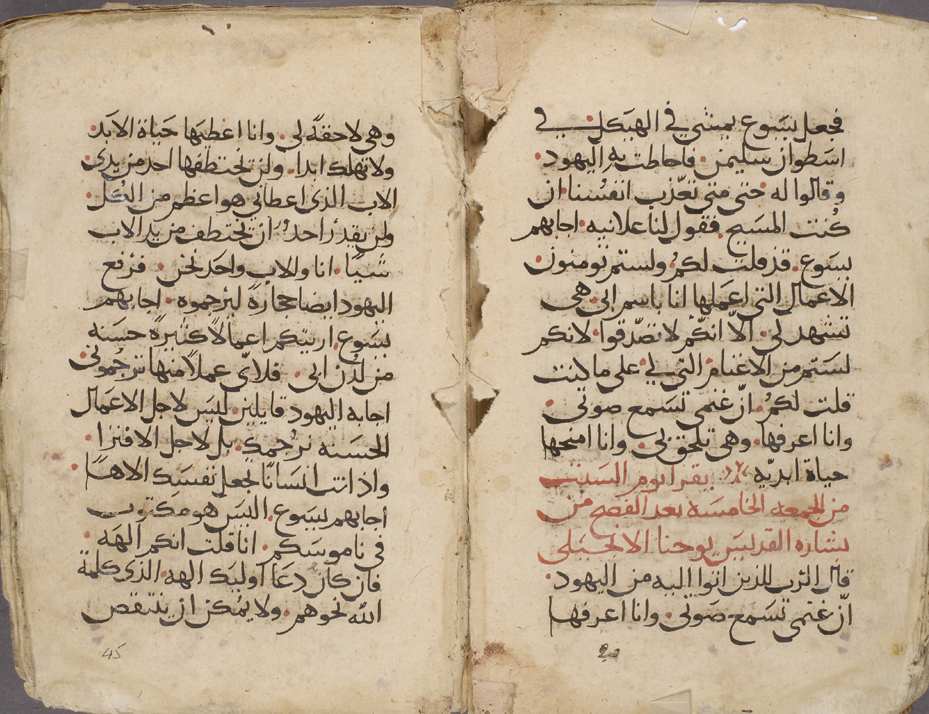 فجعل يسوع يمشي في الهيكل في
اسطوان سليمن. فاحاطت به اليهود.
وقالوا له حتى متى تعذب انفسنا. ان
كنت المسيح فقول لنا علانيه. اجابهم
يسوع. قد قلت لكم ولستم تومنون.
الاعمال التي اعملها انا باسم ابي هي
تشهد لي. الا انكم لا تصدقوا. لانكم
لستم من الاغنام التي لي على ما كنت
قلت لكم. ان غنمي تسمع صوتي.
وانا اعرفها. وهي تلحق بي. وانا امنحها
حياة ابديه يقرا يوم السبت
من الجمعه الخامسه بعد الفصح من
بشاره القديس يوحنا الانجيلي
قال الرب للذين اتوا اليه من اليهود.
ان غنمي تسمع صوتي. وانا اعرفها
وهي لاحقة لي. وانا اعطيها حياة الابد.
ولا تهلك ابدا. ولن تختطفها احد من يدي.
الاب الذي اعطاني هو اعظم من الكل.
ولن يقدر احد ان تختطف من يد الاب
شيا. انا والاب واحد نحن. فرفع
اليهود ايضا حجارة ليرجموه. اجابهم
يسوع. اريتكم اعمالا كثيرة حسنه
من لدن ابي. فلاي عملا منها ترجموني.
اجابه اليهود قايلين. ليس لاجل الاعمال
الحسنه نرجمك. بل لاجل الافترا.
واذ انت انسانا تجعل نفسك الاها.
اجابهم يسوع. اليس هو مكتوب
في ناموسكم. انا قلت انكم الهه.
فان كان دعا اوليك الهه. الذي كلمة
الله نحوهم. ولا يمكن ان ينتقص
45